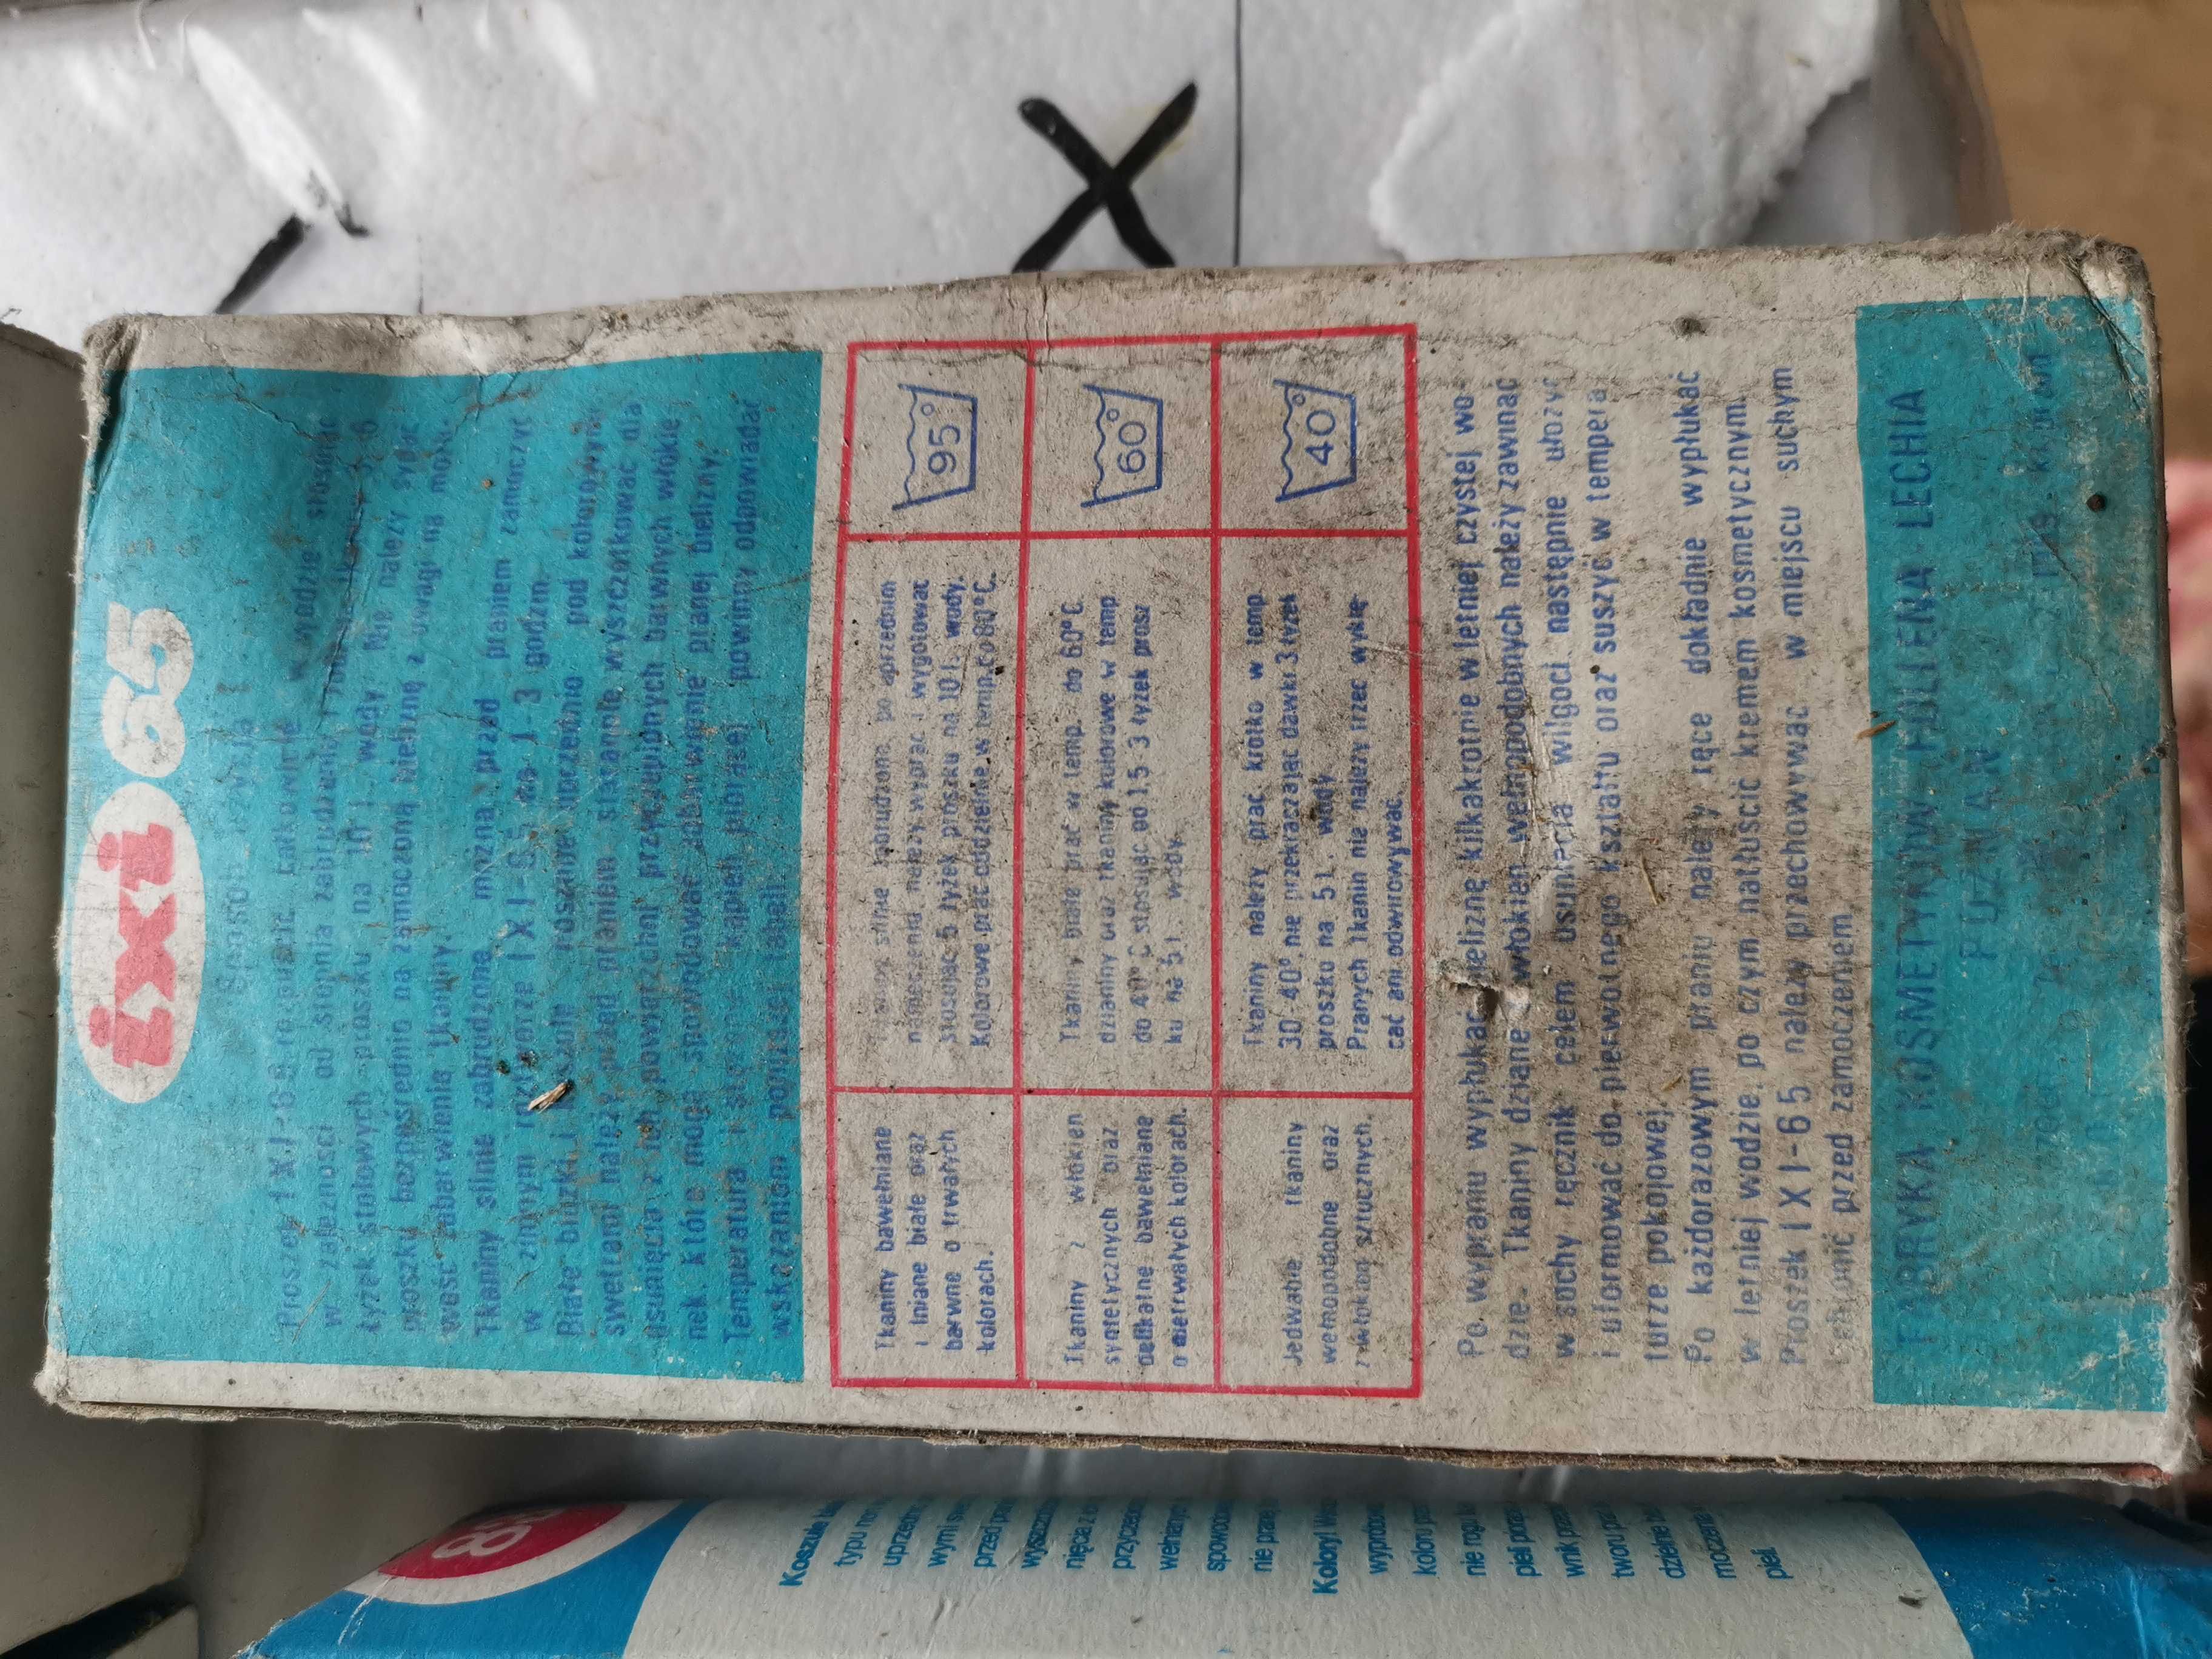 ixi 65
Sposób użycia
Proszek IXI-65 rozpuścić całkowicie w wodzie stosując
w zależności od stopnia zabrudzenia
łyżek stołowych proszku na 10 l. wody. Nie należy sypać
proszku bezpośrednio na zamoczoną bieliznę z uwagi na moż-
wość zabawienia tkaniny.
Tkaniny silnie zabrudzone można przed praniem zamoczyć
w zimnym roztworze IXI-65 na 1-3 godzin.
Białe bluzki i koszule noszone uprzednio pod kolorowymi
swetrami należy przed praniem starannie wyszczotkować dla
usunięcia z ich powierzchni przyczepionych barwnych włókie
nek które mogą spowodować zabarwienie pranej bielizny.
Temperatura kąpieli piorącej powinny odpowiadać
wskazaniom poniższej tabeli.
Tkaniny bawełniane
i lniane białe oraz
barwne o trwałych
kolorach.
Tkaniny silnie zabrudzone po uprzednim
namoczeniu należy wyprać i wygotować
stosując 5 łyżek proszku na 10 l. wody.
Kolorowe prać oddzielnie w temp. do 80°C.
95°
Tkaniny z włókien
syntetycznych oraz
delikatne bawełniane
o nietrwałych kolorach.
Tkaniny białe prać w temp. do 60°C.
dzianiny oraz tkaniny kolorowe w temp
do 40°C stosując od 1,5 3 łyżek prosz
ku na 5 l. wody.
60°
Jedwabie tkaniny
wełnopodobne oraz
z włókien sztucznych.
Tkaniny należy prać krótko w temp.
30-40°, nie przekraczając dawki 3 łyżek
proszku na 5 l. wody
Pranych tkanin nie należy trzeć wykrę-
cać ani odwirowywać.
40°
Po wypraniu wypłukać bieliznę kilkakrotnie w letniej czystej wo-
dzie- Tkaniny dziane włókien wełnopodobnych należy zawinąć
w suchy ręcznik celem usunięcia wilgoci następnie ułożyć
i uformować do pierwotnego kształtu oraz suszyć w tempera
turze pokojowej.
Po każdorazowym praniu należy ręce dokładnie wypłukać
w letniej wodzie, po czym natłuścić kremem kosmetycznym.
Proszek IXI-65 należy przechowywać w miejscu suchym
chronić przed zamoczeniem
FABRYKA KOSMETYKÓW POLLENA LECHIA
POZNAŃ
Koszule
typu
uprzed
wymi
przed
przyczep
Kolory!
koloru
pieli